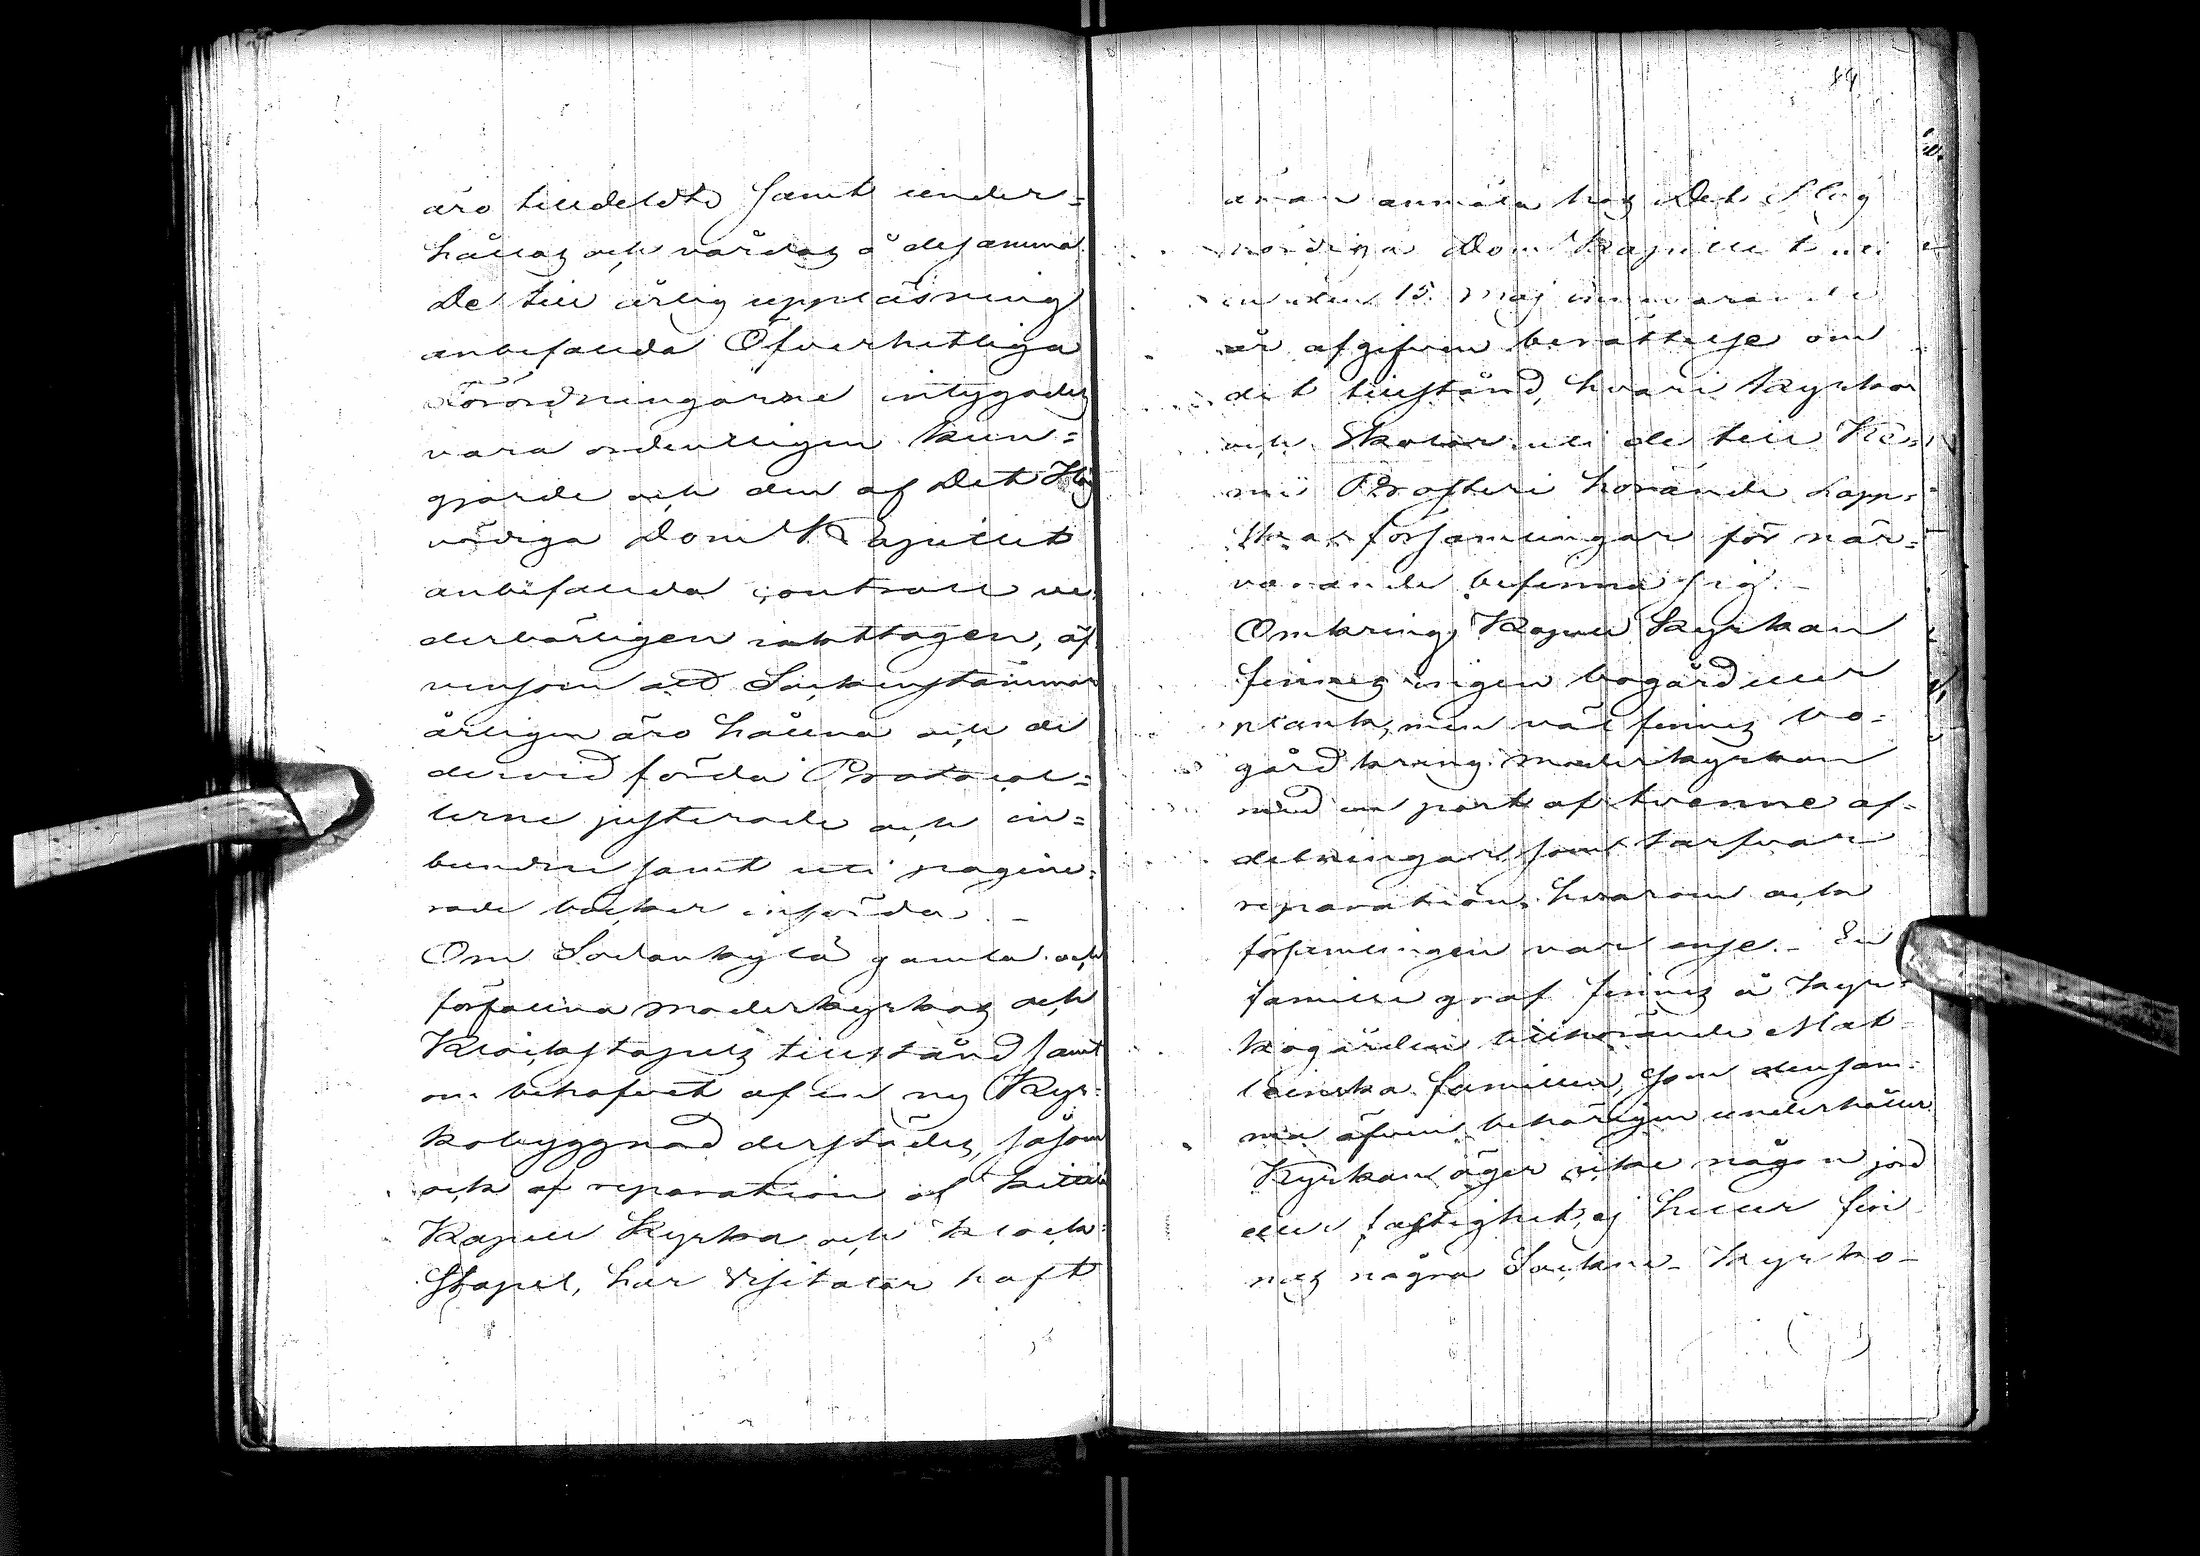 äro tilldeldte samt under=
hållas och vårdas å desamma
De till årlig uppläsning
anbefallda Öfverhetliga
Förordningarne intygades
vara ordentligen kun=
gjorde och den af Det Hög
vördiga Dom Kapitlet
anbefallda controll ve
derbörligen iakttagen, äf
vensom att Sockenstämmor
årligen äro hållna och de
dervid förda Protocol=
lerne justerade och in=
bundne samt uti pagine=
rade böcker införda. –
Om Sodankylä gamla och
förfallna moderkyrkas och
Klockstapels tillstånd samt
om behofvet af en ny Kyr=
kobyggnad derstädes, såsom
ock af reparation af Kittilä
Kapell Kyrka och klock=
stapel, har Visitator haft
84
äran anmäla hos Det Hög
vördiga Dom Kapitlet uti
en den 15 Maj innevarande
år afgifven berättelse om
det tillstånd, hvari kyrkor
och Skolor uti de till Ke=
mi Prosteri hörande Lapp=
ska församlingar för när=
varande befinna sig. –
Omkring Kapell kyrkan
finnes ingen bogård eller
plank, men väl finnes bo=
gård kring moderkyrkan
med en port af tvenne af=
delningar som tarfvar
reparation, hvarom ock
församlingen var ense. – En
familie graf finnes å kyr=
kogården tillhörande Mat
leinska familien, som densam=
ma äfven behörigen underhåller
Kyrkan äger icke någon jord
eller fastighet, ej heller fin
nes några Socken- kyrko-